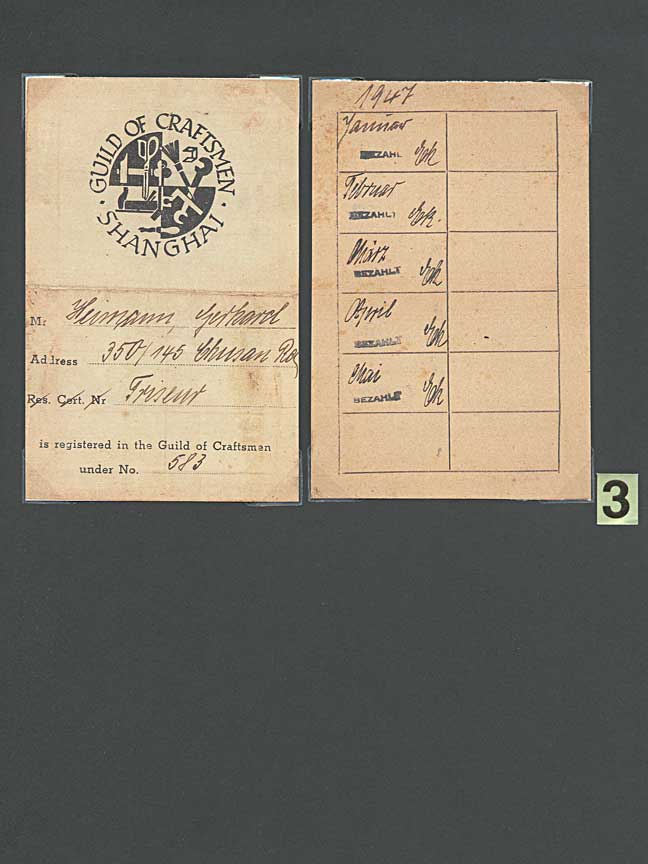 GUILD OF CRAFTSMEN
· SHANGHAI ·
Mr Heimann, Gerhard
Address 350/145 Chusan Rd
Res. Cert. Nr Friseur
is registered in the Guild of Craftsmen
under No. 583
1947
Januar
BEZAHL
Februar
BEZAHLT
März
BEZAHLT
April
BEZAHLT
Mai
BEZAHLT
3